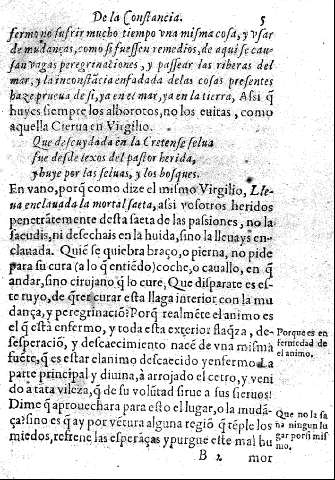 De la Constancia. 5
fermo no sufrir mucho tiempo vna misma cosa, y vsar
de mudanças, como si fuessen remedios, de aqui se cau-
san vagas peregrinaciones, y passear las riberas del
mar, y la inconstãcia enfadada de las cosas presentes
haze prueua de si, ya en el mar, ya en la tierra, Assi q̃
huyes siempre los alborotos, no los euitas, como
aquella Cierua en Virgilio.
Que descuydada en la Cretense selua
fue desde lexos del pastor herida,
y huye por las seluas, y los bosques.
En vano, porq̃ como dize el mismo Virgilio, Lle-
ua enclauada la mortal saeta, assi vosotros heridos
penetrãtemente desta saeta de las passiones, no la
sacudis, ni desechais en la huida, sino la lleuays en-
clauada. Quiẽ se quiebra braço, o pierna, no pide
para su cura (a lo q̃ entiẽdo) coche, o cauallo, en q̃
andar, sino cirujano q̃ lo cure, Que disparate es es-
te tuyo, de q̃rer curar esta llaga interior con la mu
dança, y peregrinaciõ? Porq̃ realmẽte el animo es
el q̃ està enfermo, y toda esta exterior flaq̃za, de-
sesperaciõ, y descaecimiento nacẽ de vna misma
fuẽte, q̃ es estar el animo descaecido y enfermo. La
parte principal y diuina, à arrojado el cetro, y veni
do à tata vileza, q̃ de su volũtad sirue a sus sieruos!
Dime q̃ aprouechara para esto el lugar, o la mudã-
ça? sino es q̃ ay por vẽtura alguna regiõ q̃ tẽple los
miedos, refrene las esperãças y purgue este mal hu
B 2 mor
Porque es en
fermedad de
el animo.
Que no la sa
na ningun lu
gar por si mis
mo.